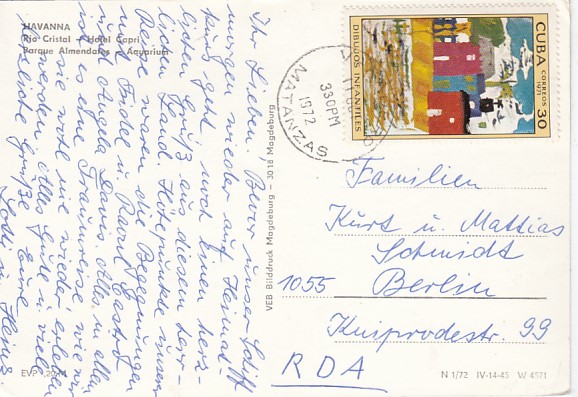 HAVANNA
Rio Cristal — Hotel Capri
Parque Almendares — Aquarium
Ihr Lieben, Bevor unser Schiff
morgen wieder auf Heimat-
kurs geht, noch einen herz-
lichen Gruß aus diesem herr-
lichen Land. Höhepunkte unserer
Reise waren die Begegnungen
mit Fidel u. Raoul Castro
und Angela Davis. Alles in allem
ist es eine Traumreise, wie wir
sie wohl nie wieder erleben
werden. Alles Gute u. viele
herzliche Grüße Eure
Lotti u. Heinz
EVP
VEB Bilddruck Magdeburg — 3018 Magdeburg
CUBA
CORREOS
1971
30
DIBUJOS INFANTILES
330PM
1972
MATANZAS
Familien
Kurt u. Mattias
Schmidt
1055 Berlin
Kniprodestr. 99
RDA
N 1/72 IV-14-45 W 4571